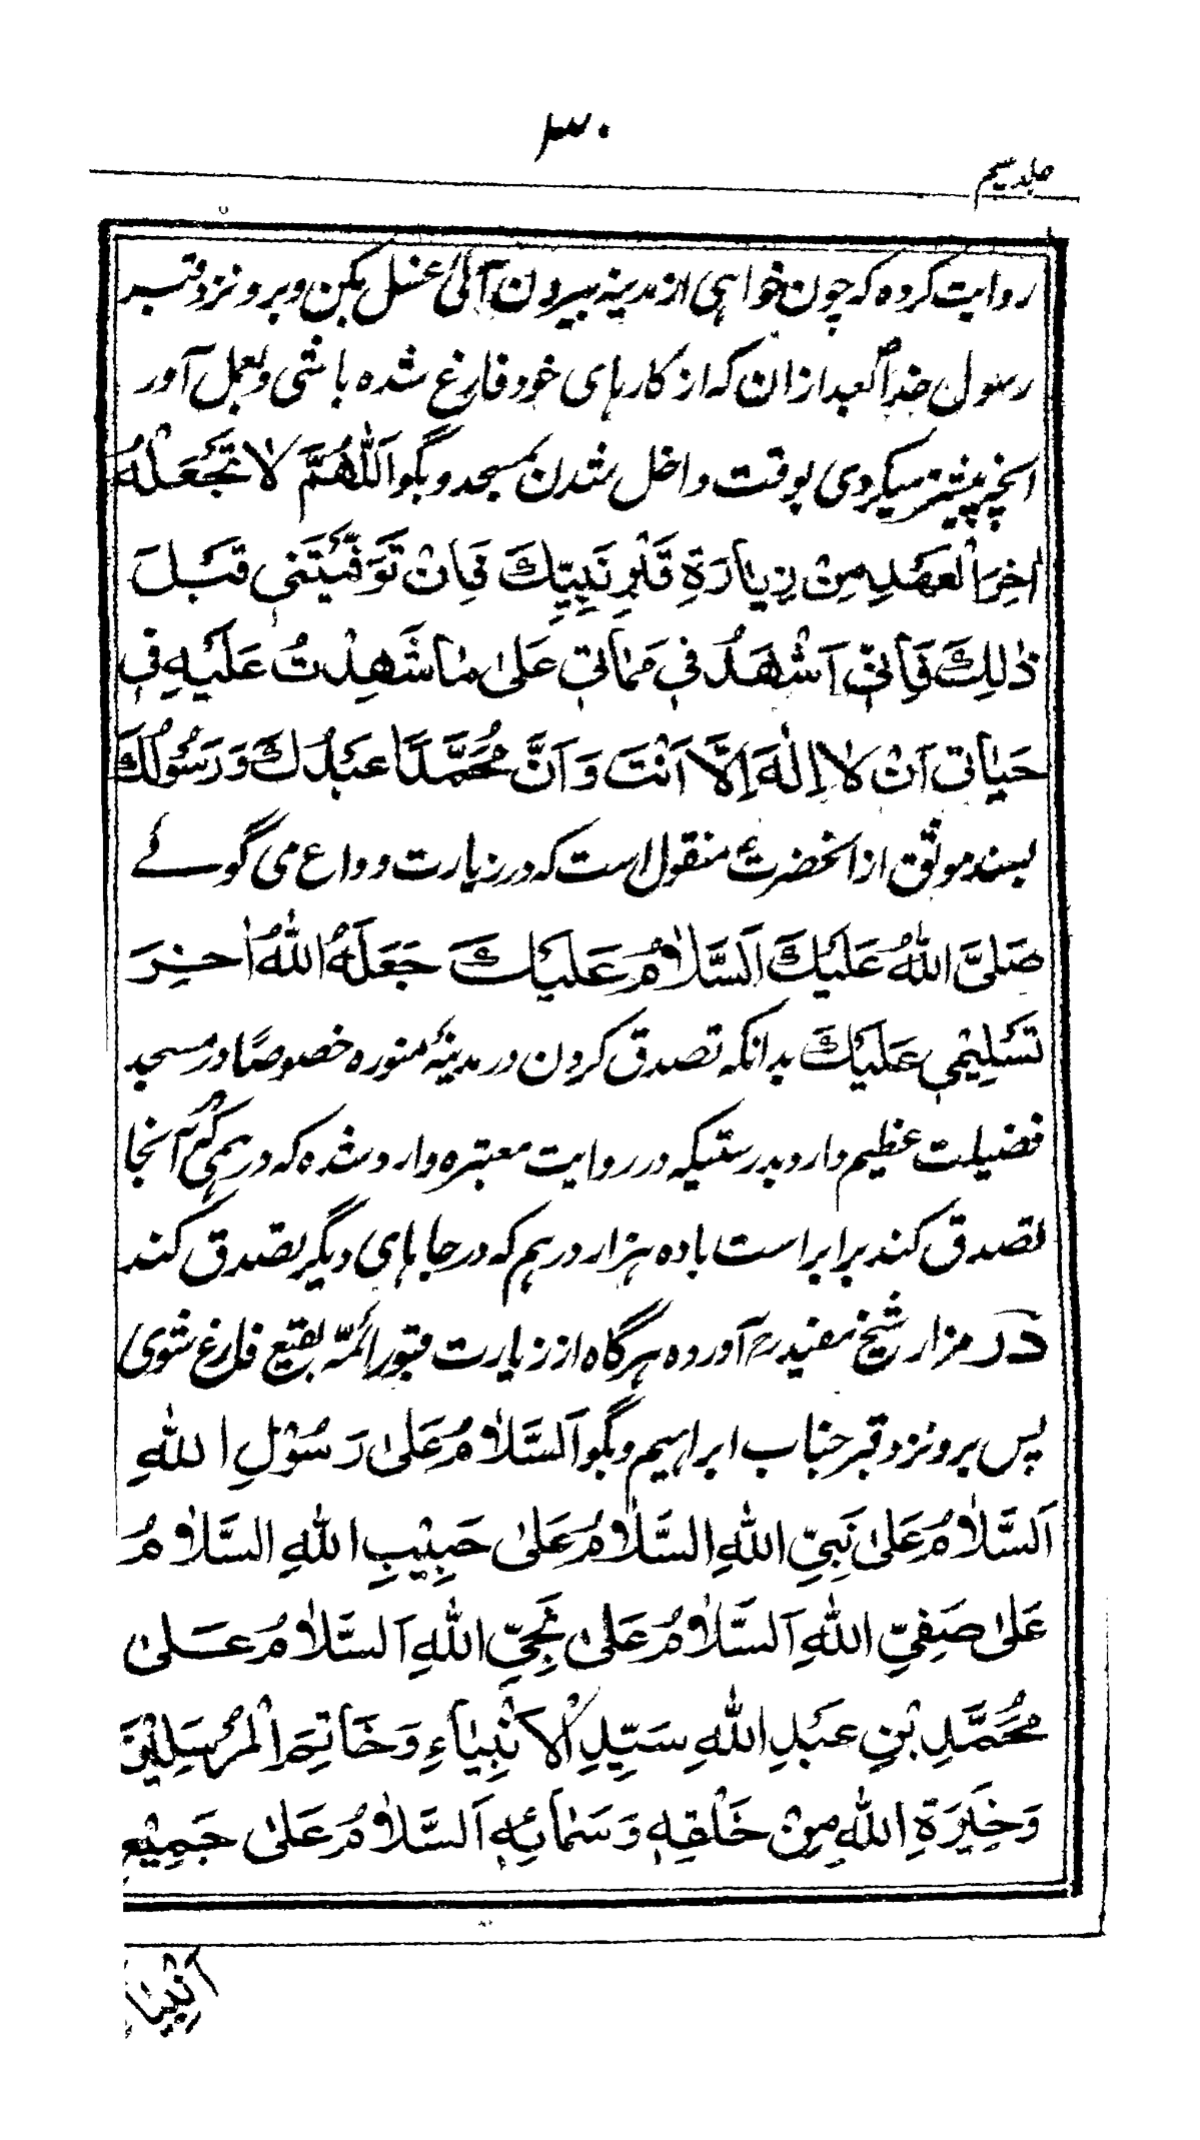 ۳۰
جلد سیم
روایت کرده که چون خواهی از مدینه بیرون آئی غسل بکن و برو نزد قبر
رسول خداؐ بعد ازان که از کارهای خود فارغ شده باشی و بعمل آور
انچه پیشتر میکردی بوقت داخل شدن بمسجد و بگو اَللّٰهُمَّ لَا تَجْعَلْهُ
اٰخِرَ الْعَهْدِ مِنْ زِیَارَةِ قَبْرِ نَبِیِّكَ فَاِنْ تَوَفَّیْتَنِی قَبْلَ
ذٰلِكَ فَاِنِّی اَشْهَدُ فِی مَمَاتِی عَلیٰ مَا شَهِدْتُ عَلَیْهِ فِی
حَیَاتِی اَنْ لَا اِلٰهَ اِلَّا اَنْتَ وَ اَنَّ مُحَمَّدًا عَبْدُكَ وَ رَسُوْلُكَ
بسند موثق از انحضرتؑ منقول است که در زیارت وداع می گوئے
صَلَّی اللّٰهُ عَلَیْكَ اَلسَّلَامُ عَلَیْكَ جَعَلَهُ اللّٰهُ اٰخِرَ
تَسْلِیْمِی عَلَیْكَ بدانکه تصدق کردن در مدینۀ منوره خصوصًا در مسجد
فضیلت عظیم دارد بدرستیکه در روایت معتبره وارد شده که درهمی که آنجا
تصدق کند برابر است باده هزار درهم که در جاهای دیگر تصدق کند
در مزار شیخ مفیدؒ آورده هرگاه از زیارت قبور ائمّه بقیع فارغ شوی
پس برو نزد قبر جناب ابراهیم و بگو اَلسَّلَامُ عَلیٰ رَسُوْلِ اللّٰهِ
اَلسَّلَامُ عَلیٰ نَبِیِّ اللّٰهِ السَّلَامُ عَلیٰ حَبِیْبِ اللّٰهِ السَّلَامُ
عَلیٰ صَفِیِّ اللّٰهِ اَلسَّلَامُ عَلیٰ نَجِیِّ اللّٰهِ اَلسَّلَامُ عَلیٰ
مُحَمَّدِ بْنِ عَبْدِ اللّٰهِ سَیِّدِ الْاَنْبِیَاءِ وَ خَاتِمِ الْمُرْسَلِیْنَ
وَ خِیَرَةِ اللّٰهِ مِنْ خَلْقِهٖ وَ سَمَائِهٖ اَلسَّلَامُ عَلیٰ جَمِیْعِ
اَنْبِیَاءِ